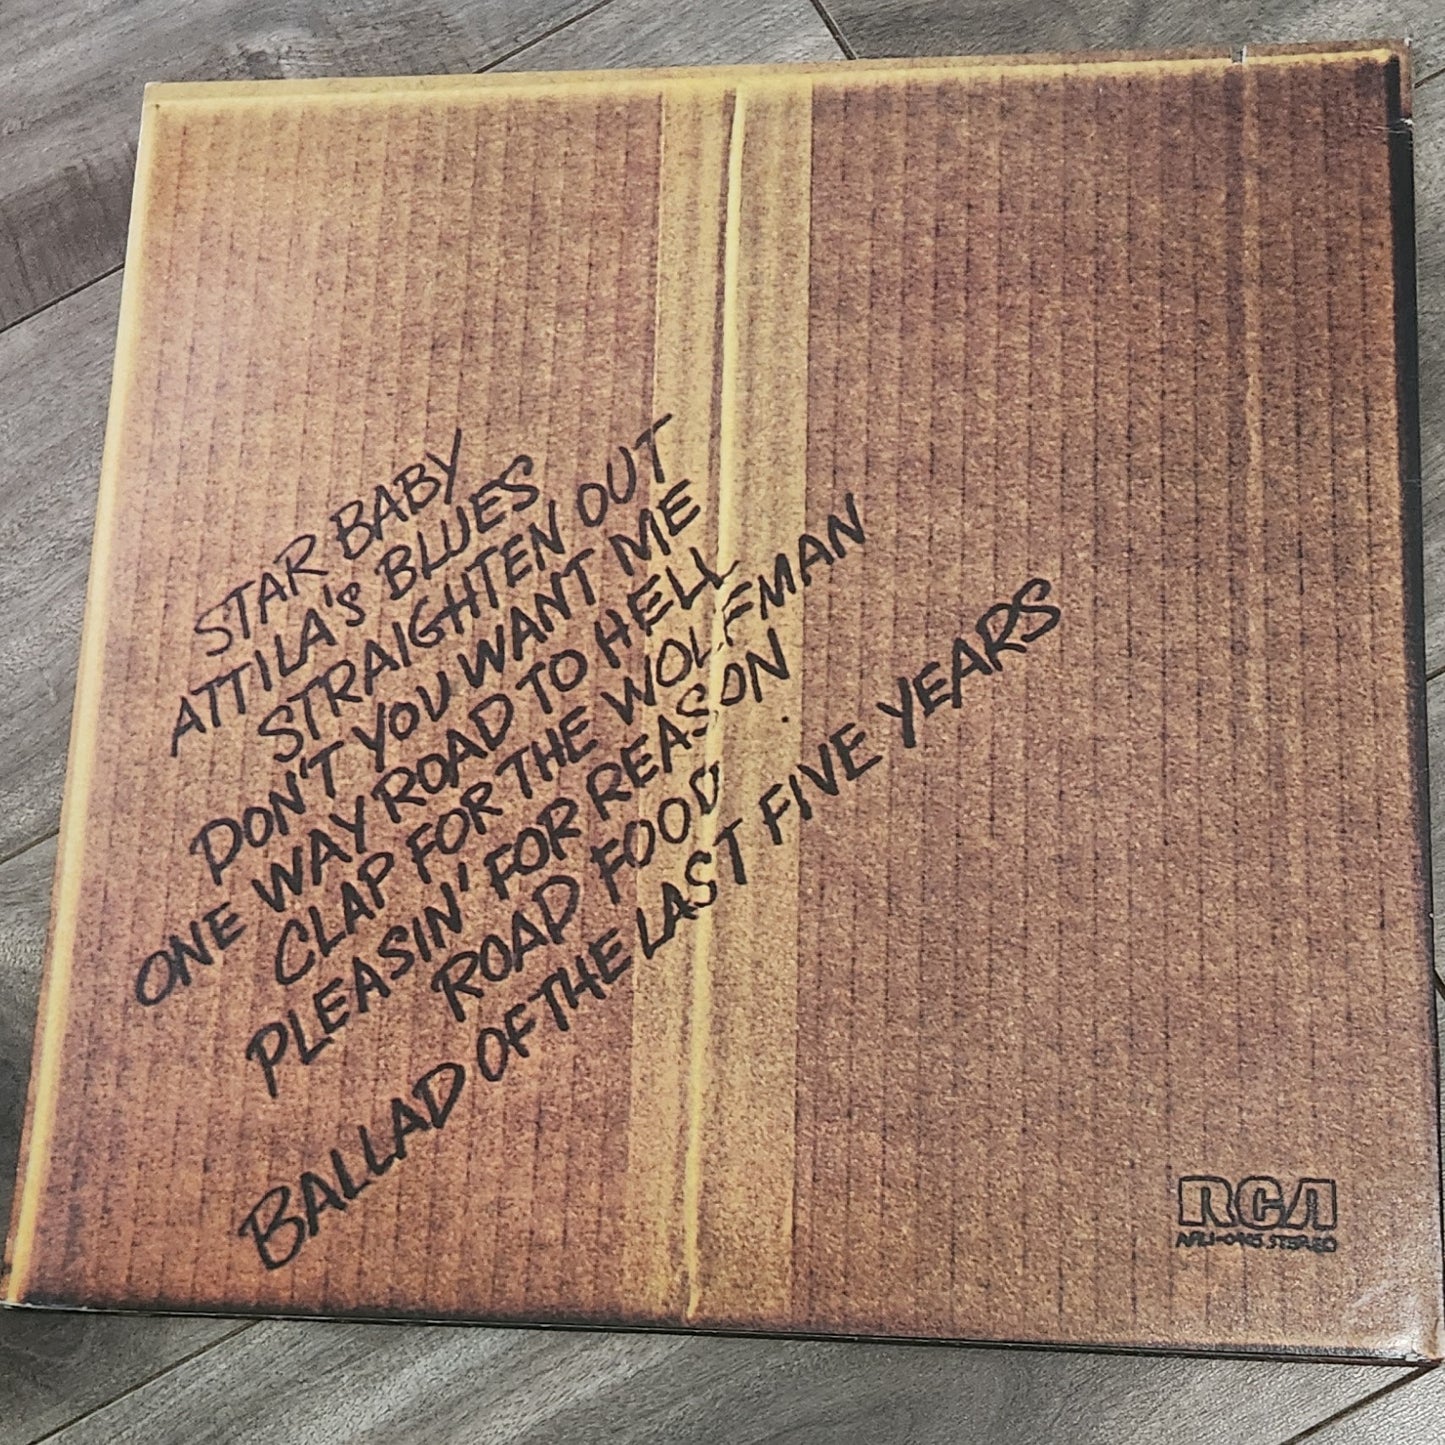 STAR BABY
ATTILA'S BLUES
STRAIGHTEN OUT
DON'T YOU WANT ME
ONE WAY ROAD TO HELL
CLAP FOR THE WOLFMAN
PLEASIN' FOR REASON
ROAD FOOD
BALLAD OF THE LAST FIVE YEARS
RCA
AFL1-0405 STEREO